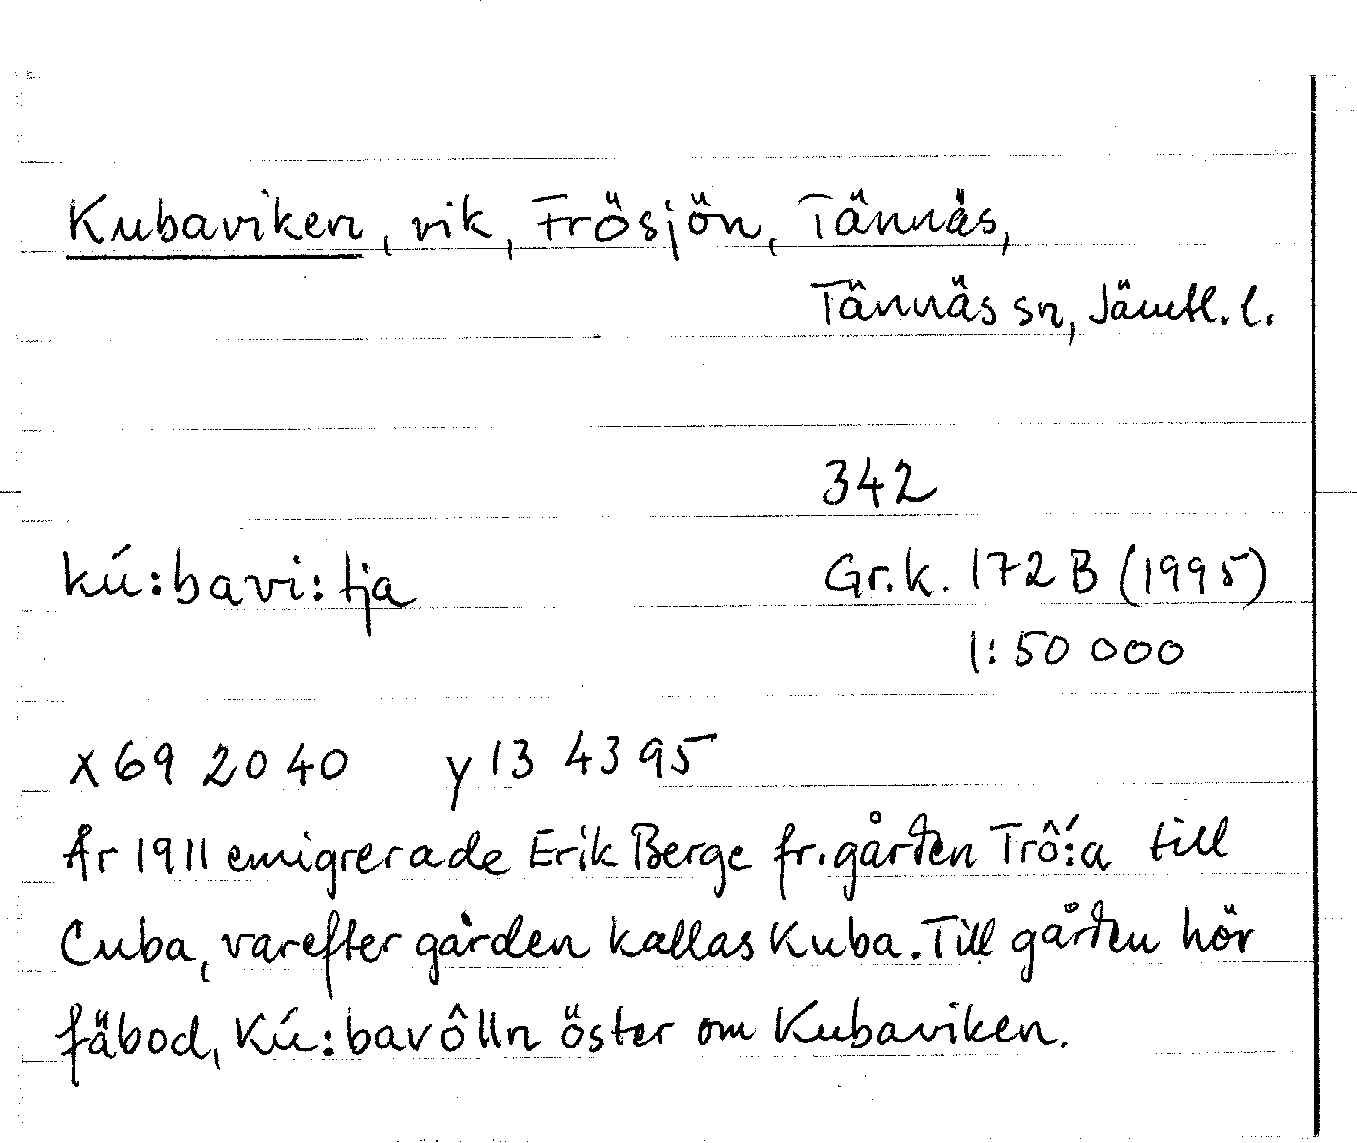 Kubaviken, vik, Frösjön, Tännäs,
Tännäs sn, Jämtl. l.
342
kú:bavi:tja Gr.k. 172 B (1995)
1:50 000
x 69 20 40 y 13 43 95
År 1911 emigrerade Erik Berge fr. gården Trô´:a till
Cuba, varefter gården kallas Kuba. Till gården hör
fäbod, Kú:bavôlln öster om Kubaviken.